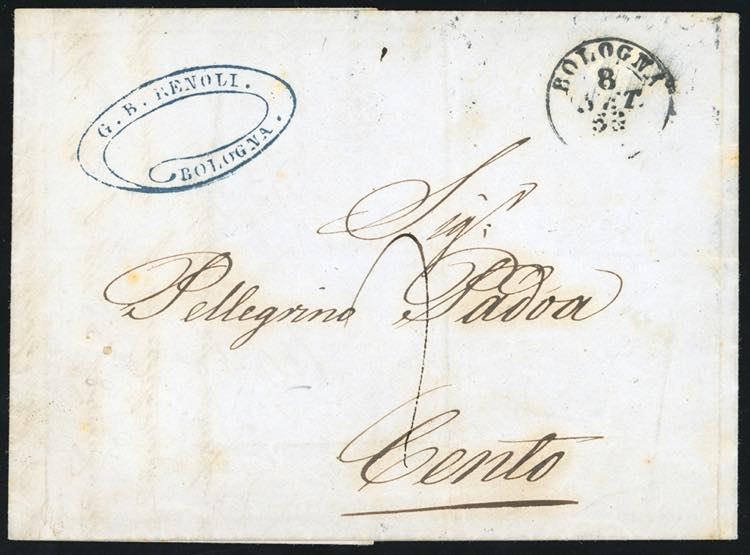 G. B. RENOLI.
BOLOGNA.
BOLOGNA
8
SET.
Sigr.
Pellegrino Padoa
Cento